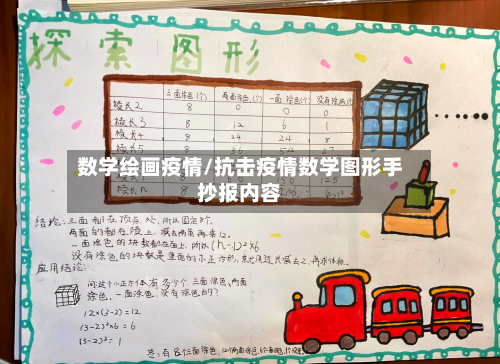 探索图形
三面涂色(个) 两面涂色(个) 一面涂色(个) 没有涂色(个)
棱长2 8 0 0 0
棱长3 8 12 6 1
棱长4 8 24 24 8
棱长5 8 36 54 27
数学绘画疫情/抗击疫情数学图形手
抄报内容
结论:三面都在顶点处,所以固定8个,
两面的都在棱上,减去两角再乘12。
一面涂色的块数都在面上,所以(n-2)²×6
没有涂色的块数是里面的小正方形,
应用结论:
问:这个小正方体有多少个三面涂色,两面
涂色,一面涂色,没有涂色的?
12×(3-2)=12
(3-2)²×6=6
(3-2)³=1
答:有8个三面涂色,12个两面涂色,6个面涂色,1个没